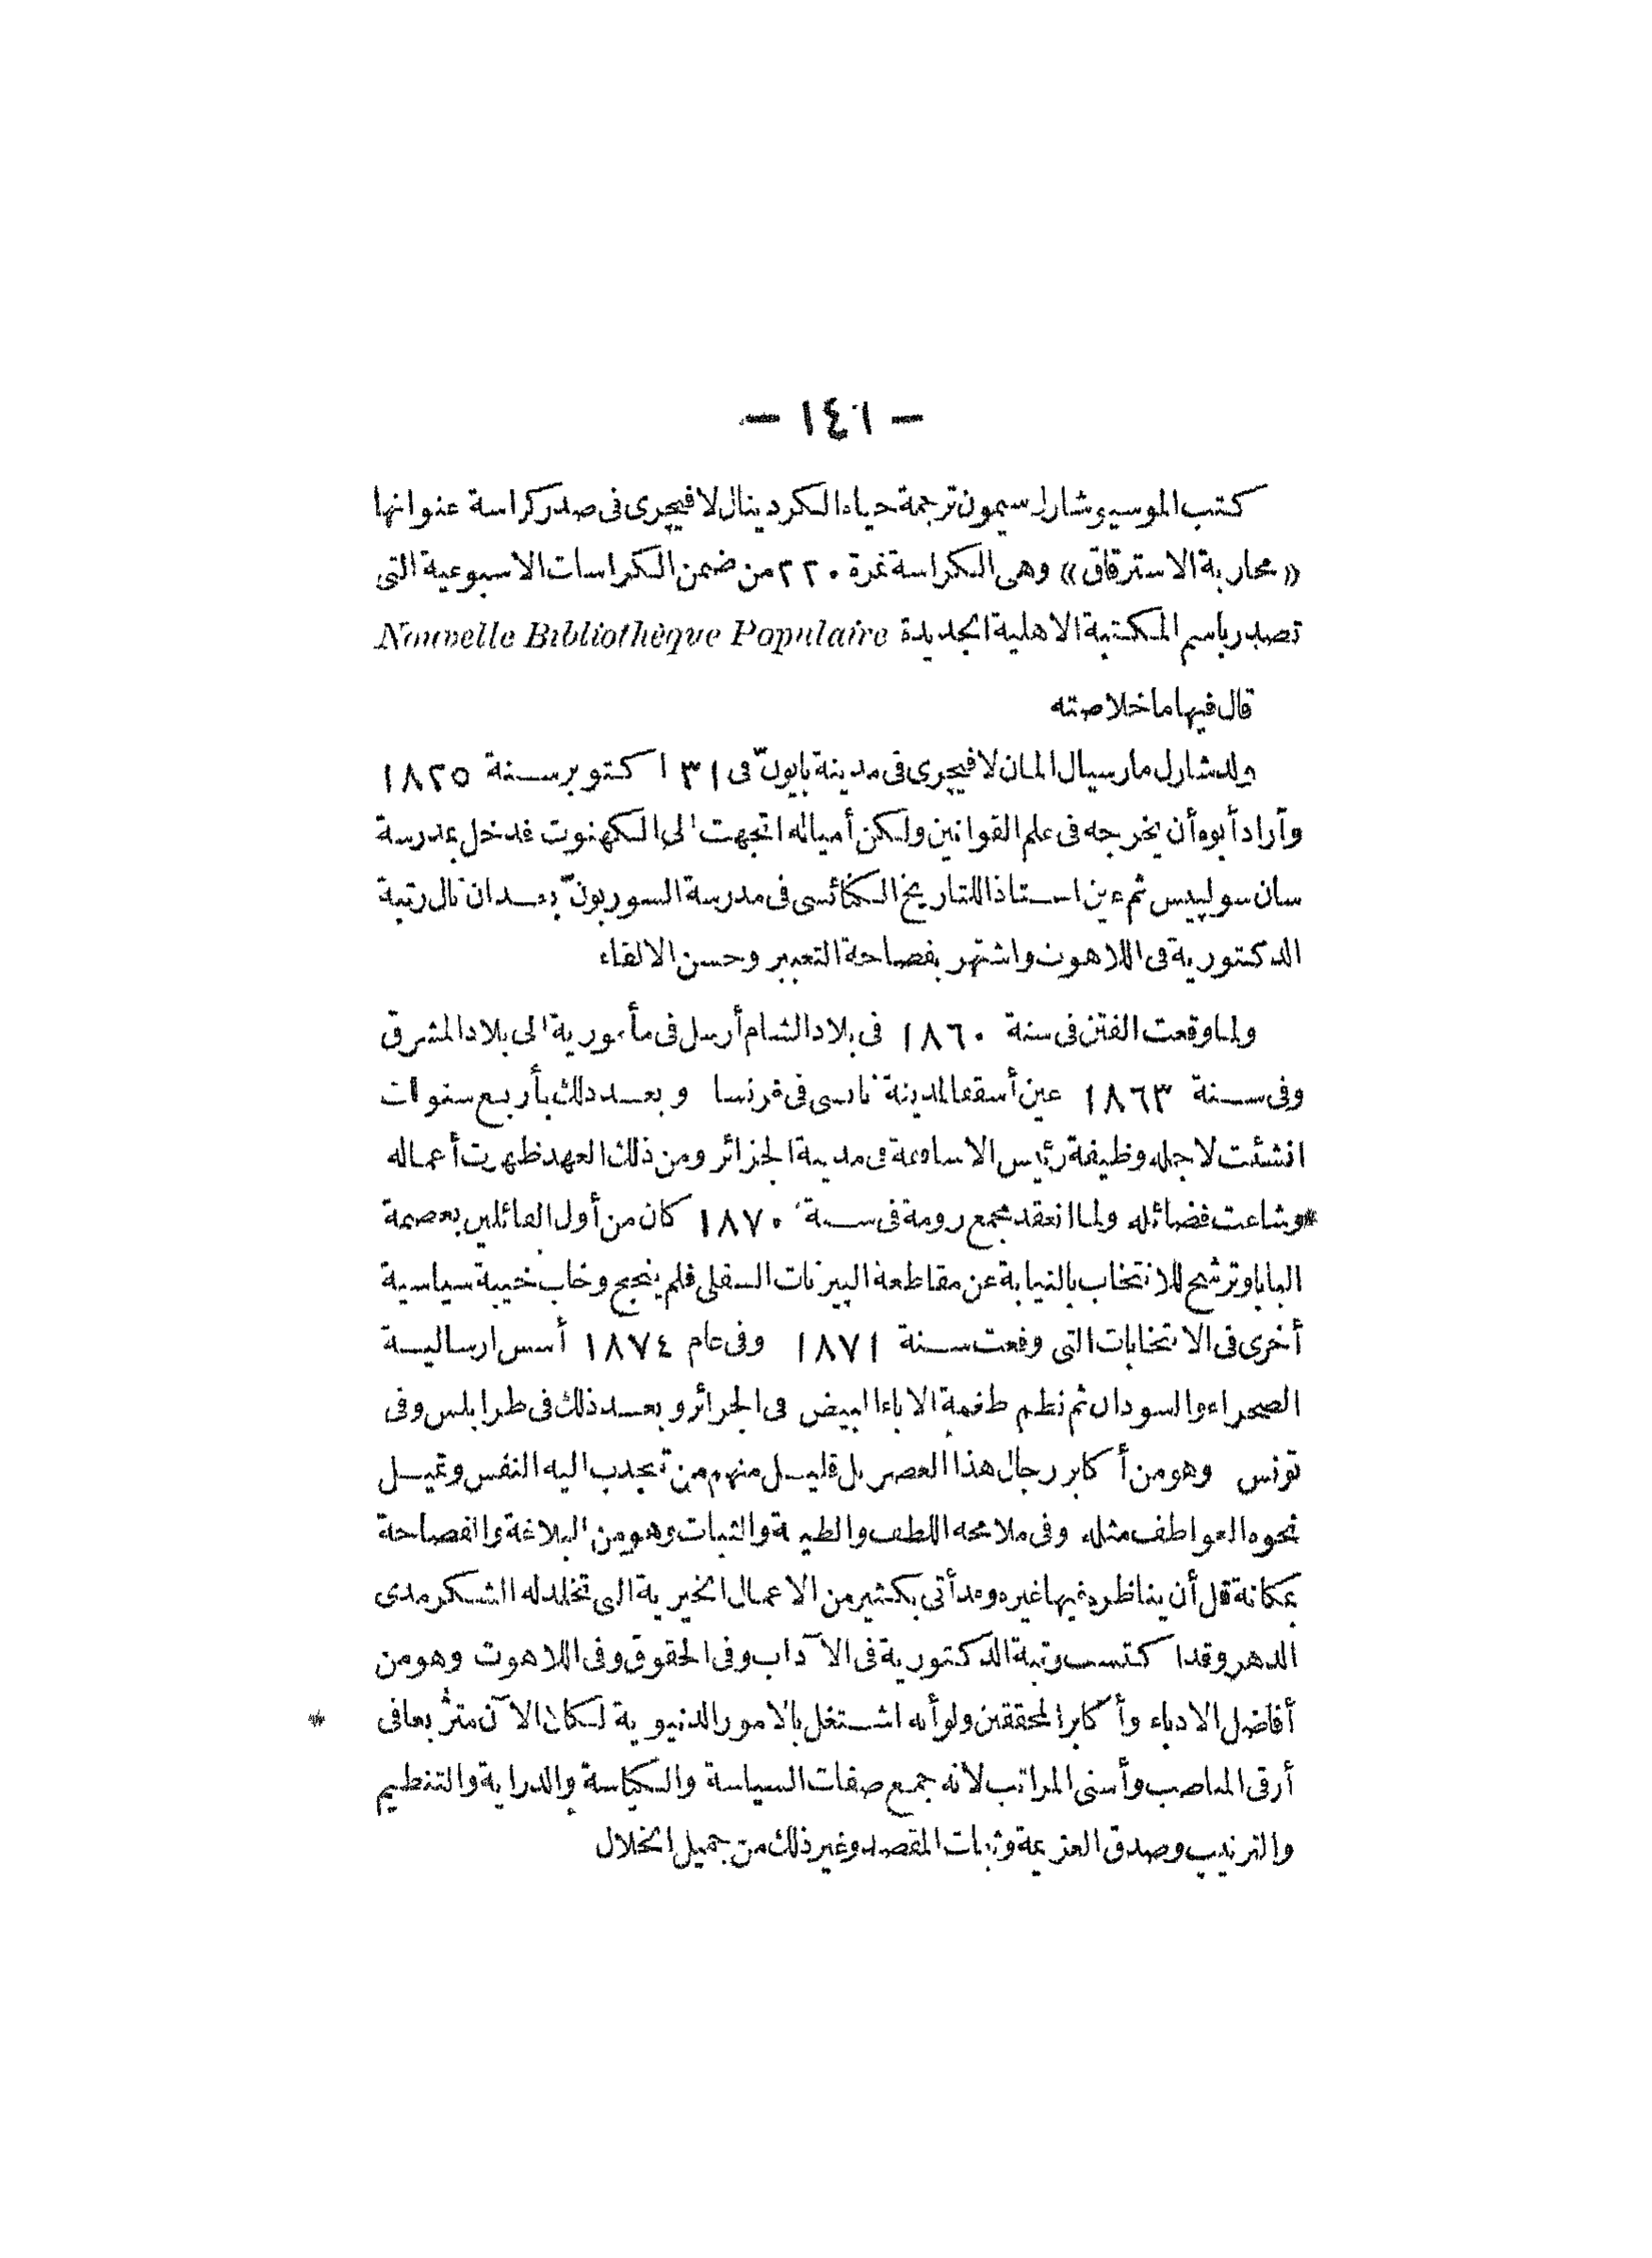 — ١٤١ —
كتب الموسيو شارل سيمون ترجمة حياة الكردينال لافيچرى فى صدر كراسة عنوانها
« محاربة الاسترقاق » وهى الكراسة نمرة ٢٢٠ من ضمن الكراسات الاسبوعية التى
تصدر باسم المكتبة الاهلية الجديدة Nouvelle Bibliothèque Populaire
قال فيها ما خلاصته
ولد شارل مارسيال المان لافيچرى فى مدينة بايونّ فى ٣١ اكتوبر سنة ١٨٢٥
وأراد أبوه أن يخرجه فى علم القوانين ولكن أمياله اتجهت الى الكهنوت فدخل بمدرسة
سان سولپيس ثم عين استاذا للتاريخ الكنائسى فى مدرسة السوربونّ بعد ان نال رتبة
الدكتورية فى اللاهوت واشتهر بفصاحة التعبير وحسن الالقاء
ولما وقعت الفتن فى سنة ١٨٦٠ فى بلاد الشام أرسل فى مأمورية الى بلاد المشرق
وفى سنة ١٨٦٣ عين أسقفا لمدينة نانسى فى فرنسا وبعد ذلك بأربع سنوات
انشئت لاجله وظيفة رئيس الاساقفة فى مدينة الجزائر ومن ذلك العهد ظهرت أعماله
*وشاعت فضائله ولما انعقد مجمع رومة فى سنة ١٨٧٠ كان من أول القائلين بعصمة
البابا وترشح للانتخاب بالنيابة عن مقاطعة الپيرنات السفلى فلم ينجح وخاب خيبة سياسية
أخرى فى الانتخابات التى وقعت سنة ١٨٧١ وفى عام ١٨٧٤ أسس ارسالية
الصحراء والسودان ثم نظم طغمة الاباء البيض فى الجزائر وبعد ذلك فى طرابلس وفى
تونس وهو من أكابر رجال هذا العصر بل قليل منهم من تنجذب اليه النفس وتميل
نحوه العواطف مثله وفى ملامحه اللطف والطيبة والثبات وهو من البلاغة والفصاحة
بمكانة قل أن يناظره فيها غيره وقد أتى بكثير من الاعمال الخيرية التى تخلد له الشكر مدى
الدهر وقد اكتسب رتبة الدكتورية فى الآداب وفى الحقوق وفى اللاهوت وهو من
أفاضل الادباء وأكابر المحققين ولو أنه اشتغل بالامور الدنيوية لكان الآن متربعا فى *
أرقى المناصب وأسنى المراتب لانه جمع صفات السياسة والكياسة والدراية والتنظيم
والترتيب وصدق العزيمة وثبات المقصد وغير ذلك من جميل الخلال